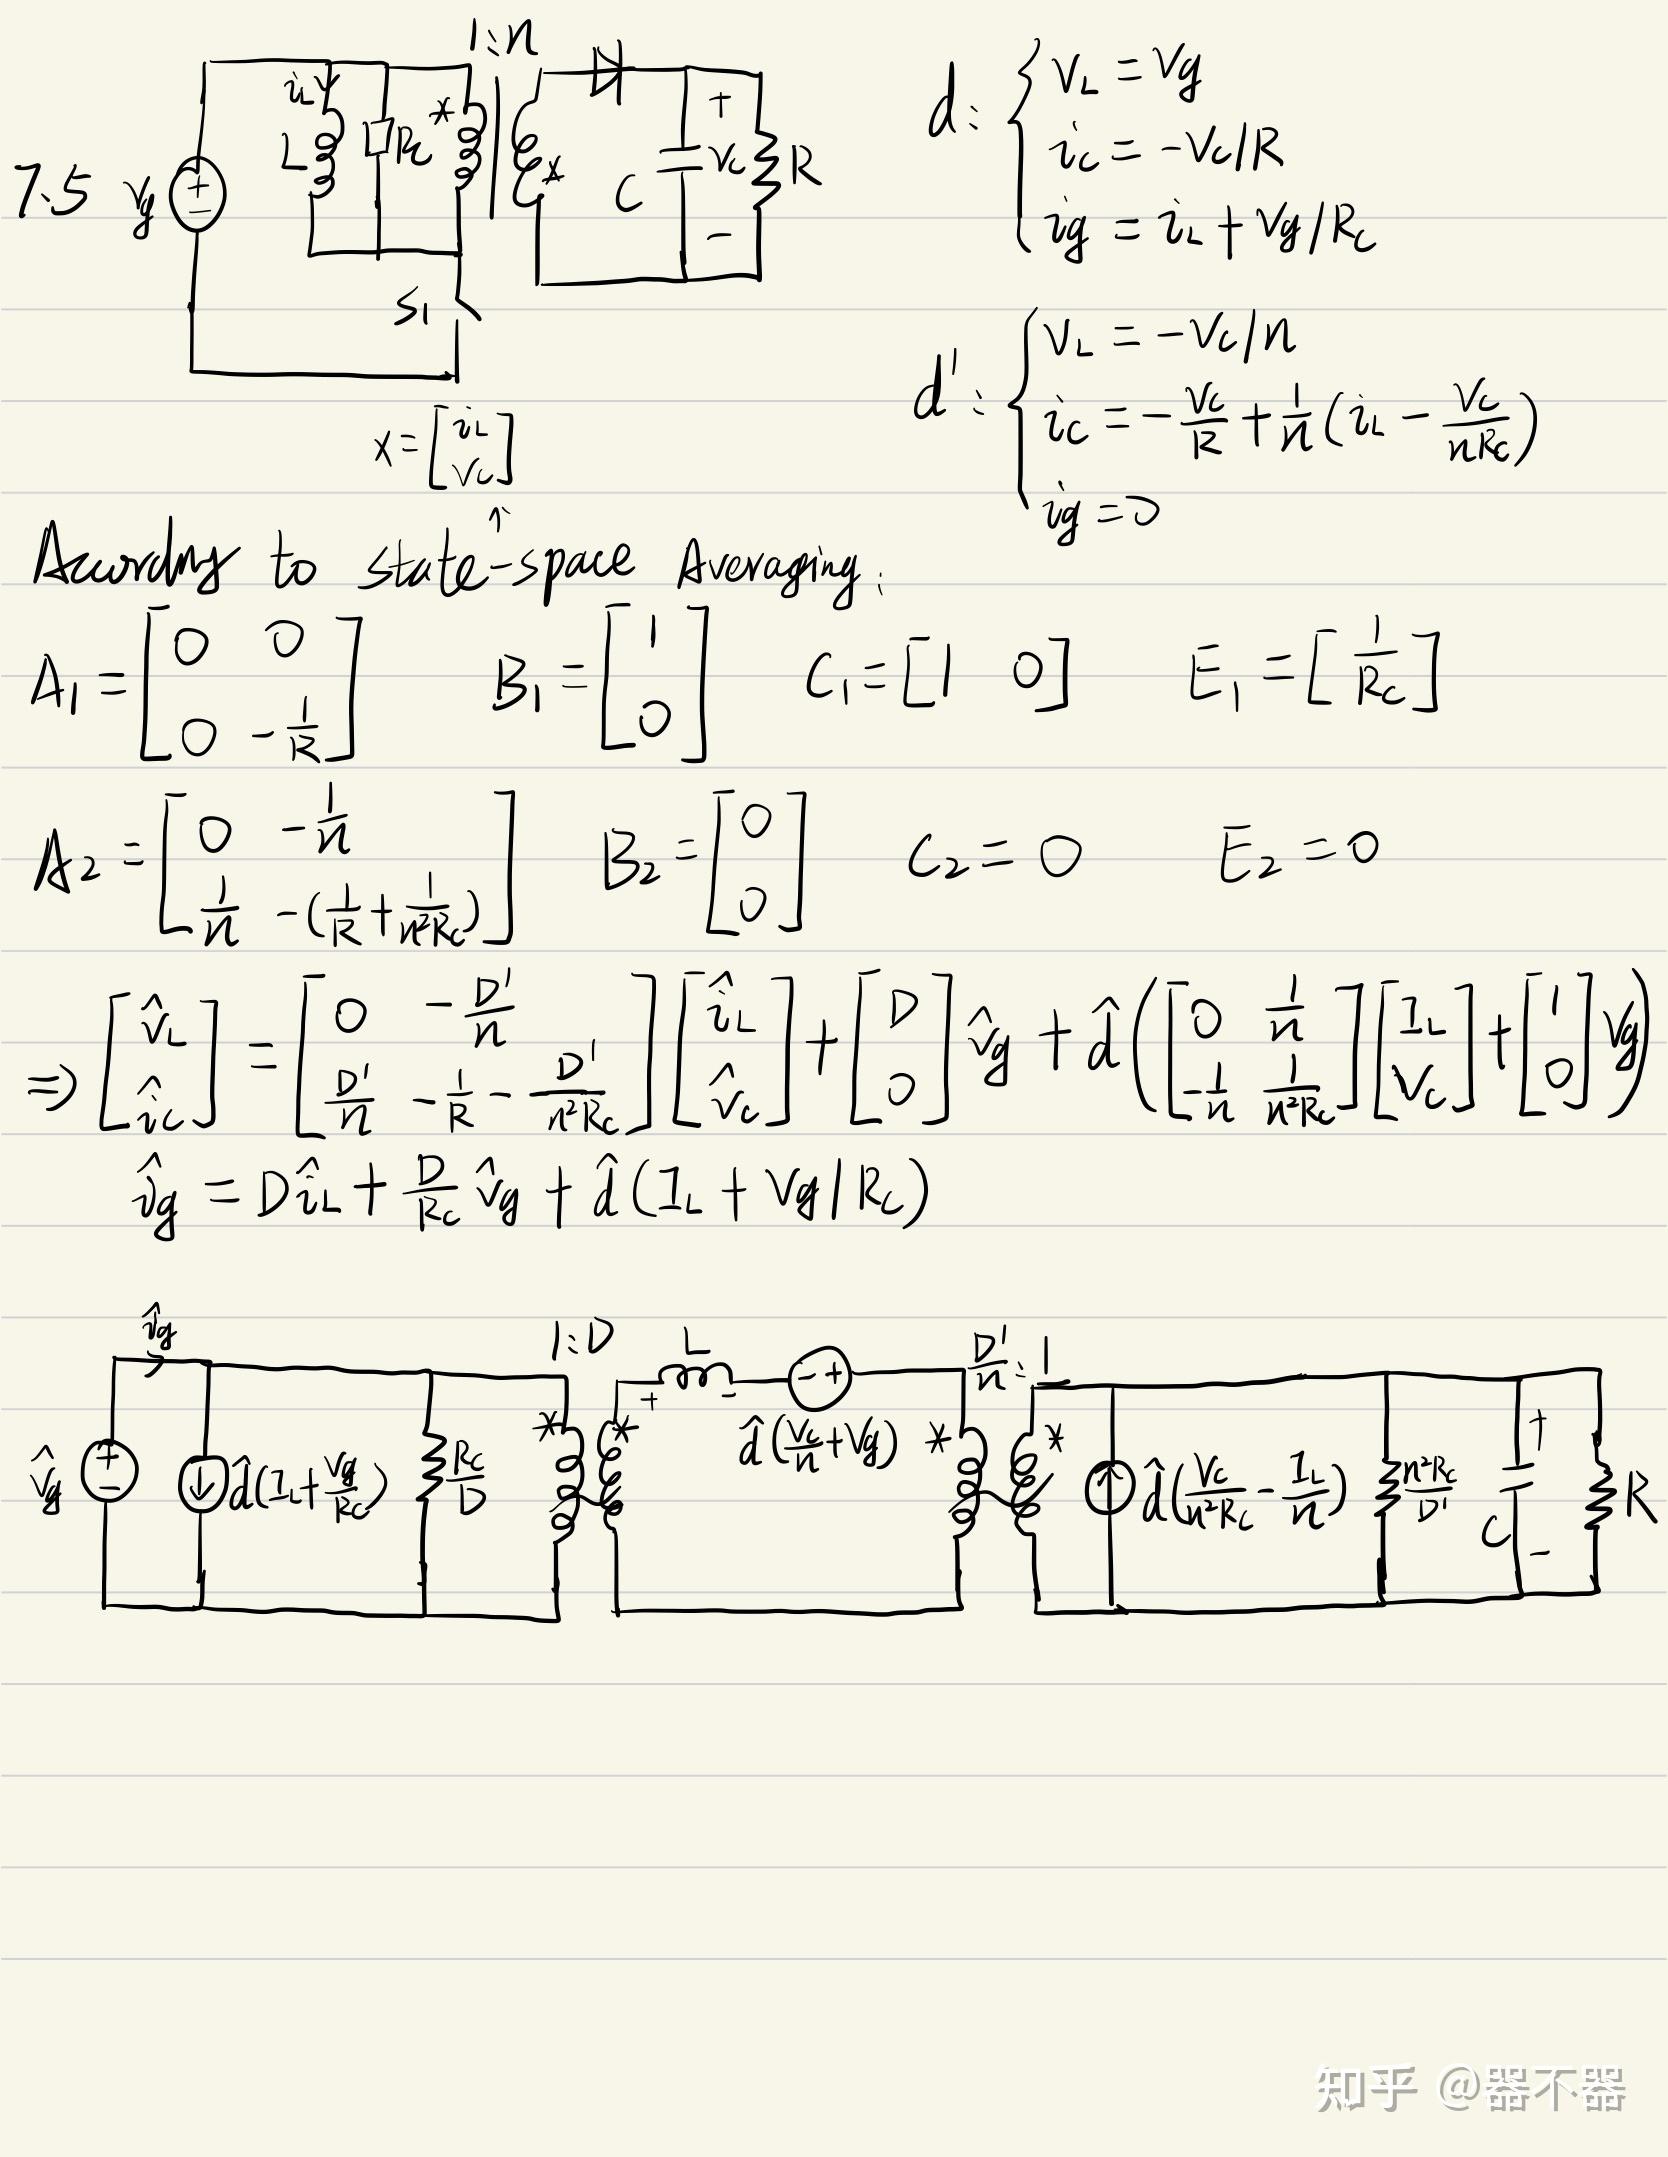 7.5
1:n
v_g
i_L
L
R_c
*
*
S_1
C
+
v_c
-
R
x = [i_L; v_c]
d: { v_L = v_g
i_c = -v_c/R
i_g = i_L + v_g/R_c
d': { v_L = -v_c/n
i_c = -v_c/R + 1/n (i_L - v_c/(nR_c))
i_g = 0
↑
According to state-space Averaging:
A_1 = [0 0; 0 -1/R] B_1 = [1; 0] C_1 = [1 0] E_1 = [1/R_c]
A_2 = [0 -1/n; 1/n -(1/R + 1/(n²R_c))] B_2 = [0; 0] C_2 = 0 E_2 = 0
⇒ [v̂_L; î_c] = [0 -D'/n; D'/n -1/R - D'/(n²R_c)] [î_L; v̂_c] + [D; 0] v̂_g + d̂ ([0 1/n; -1/n 1/(n²R_c)] [I_L; V_c] + [1; 0] V_g)
î_g = D î_L + D/R_c v̂_g + d̂ (I_L + V_g/R_c)
î_g
1:D
L
+ -
- +
D'/n : 1
v̂_g
+
-
d̂(I_L + V_g/R_c)
R_c/D
*
*
d̂(V_c/n + V_g)
*
*
d̂(V_c/(n²R_c) - I_L/n)
n²R_c/D'
C
+
-
R
知乎 @器不器